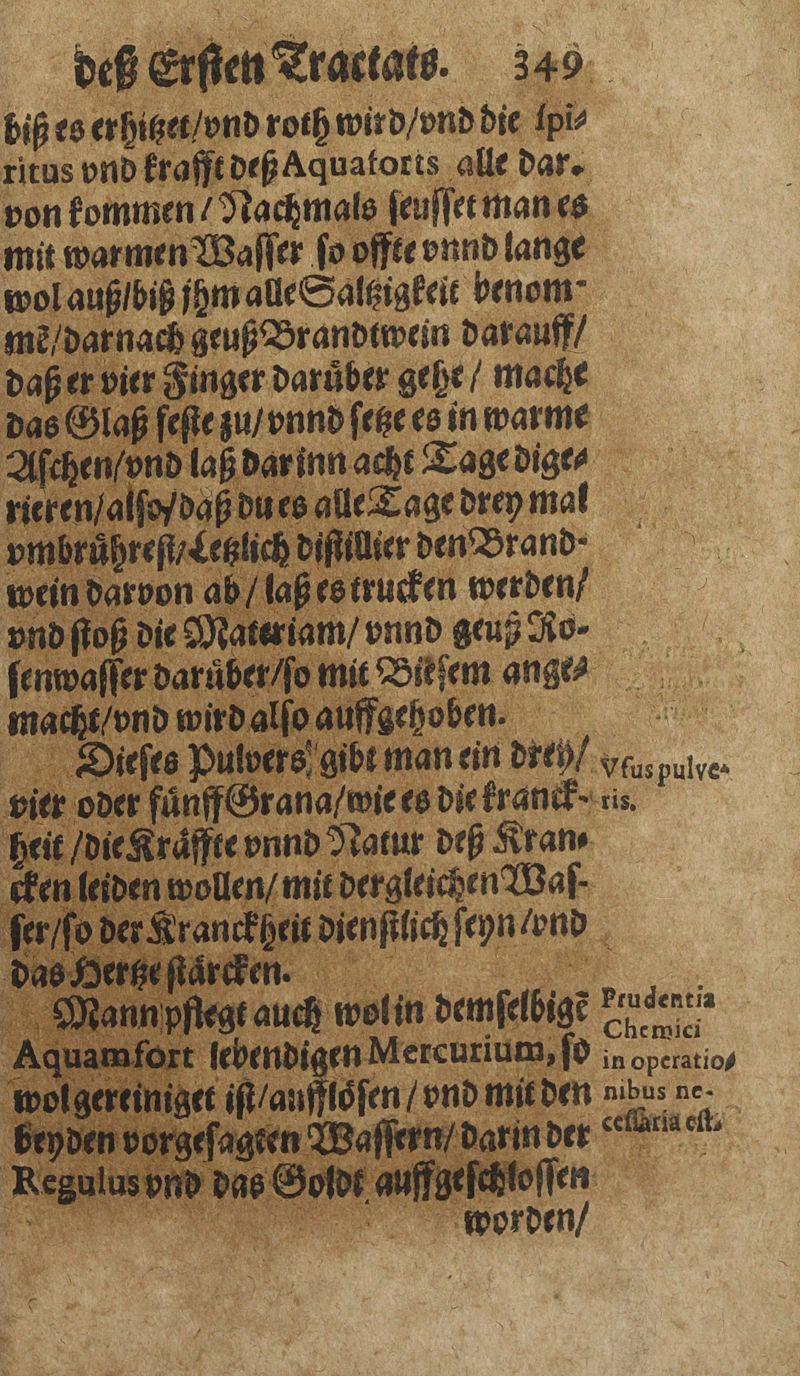 deß Ersten Tractats. 349
biß es erhitzet/vnd roth wird/vnd die spi-
ritus vnd krafft deß Aquaforts alle dar-
von kommen/ Nachmals seusset man es
mit warmen Wasser so offte vnnd lange
wol auß/biß jhm alle Saltzigkeit benom-
mẽ/darnach geuß Brandtwein darauff/
daß er vier Finger darüber gehe/ mache
das Glaß feste zu/vnnd setze es in warme
Aschen/vnd laß darinn acht Tage dige-
rieren/also/daß du es alle Tage drey mal
vmbrührest/Letzlich distillier den Brand-
wein darvon ab/ laß es trucken werden/
vnd stoß die Materiam/ vnnd geuß Ro-
senwasser darüber/so mit Biesem ange-
macht/vnd wird also auffgehoben.
Dieses Pulvers gibt man ein drey/
Vsus pulve-
vier oder fünff Grana/wie es die kranck-
ris.
heit/die Kräffte vnnd Natur deß Kran-
cken leiden wollen/ mit dergleichen Was-
ser/so der Kranckheit dienstlich seyn/vnd
das Hertze stärcken.
Mann pflegt auch wol in demselbigẽ
Prudentia
Chemici
Aquamfort lebendigen Mercurium, so
in operatio-
wol gereiniget ist/aufflösen/ vnd mit den
nibus ne-
beyden vorgesagten Wassern/ darin der
cessaria est.
Regulus vnd das Goldt auffgeschlossen
worden/